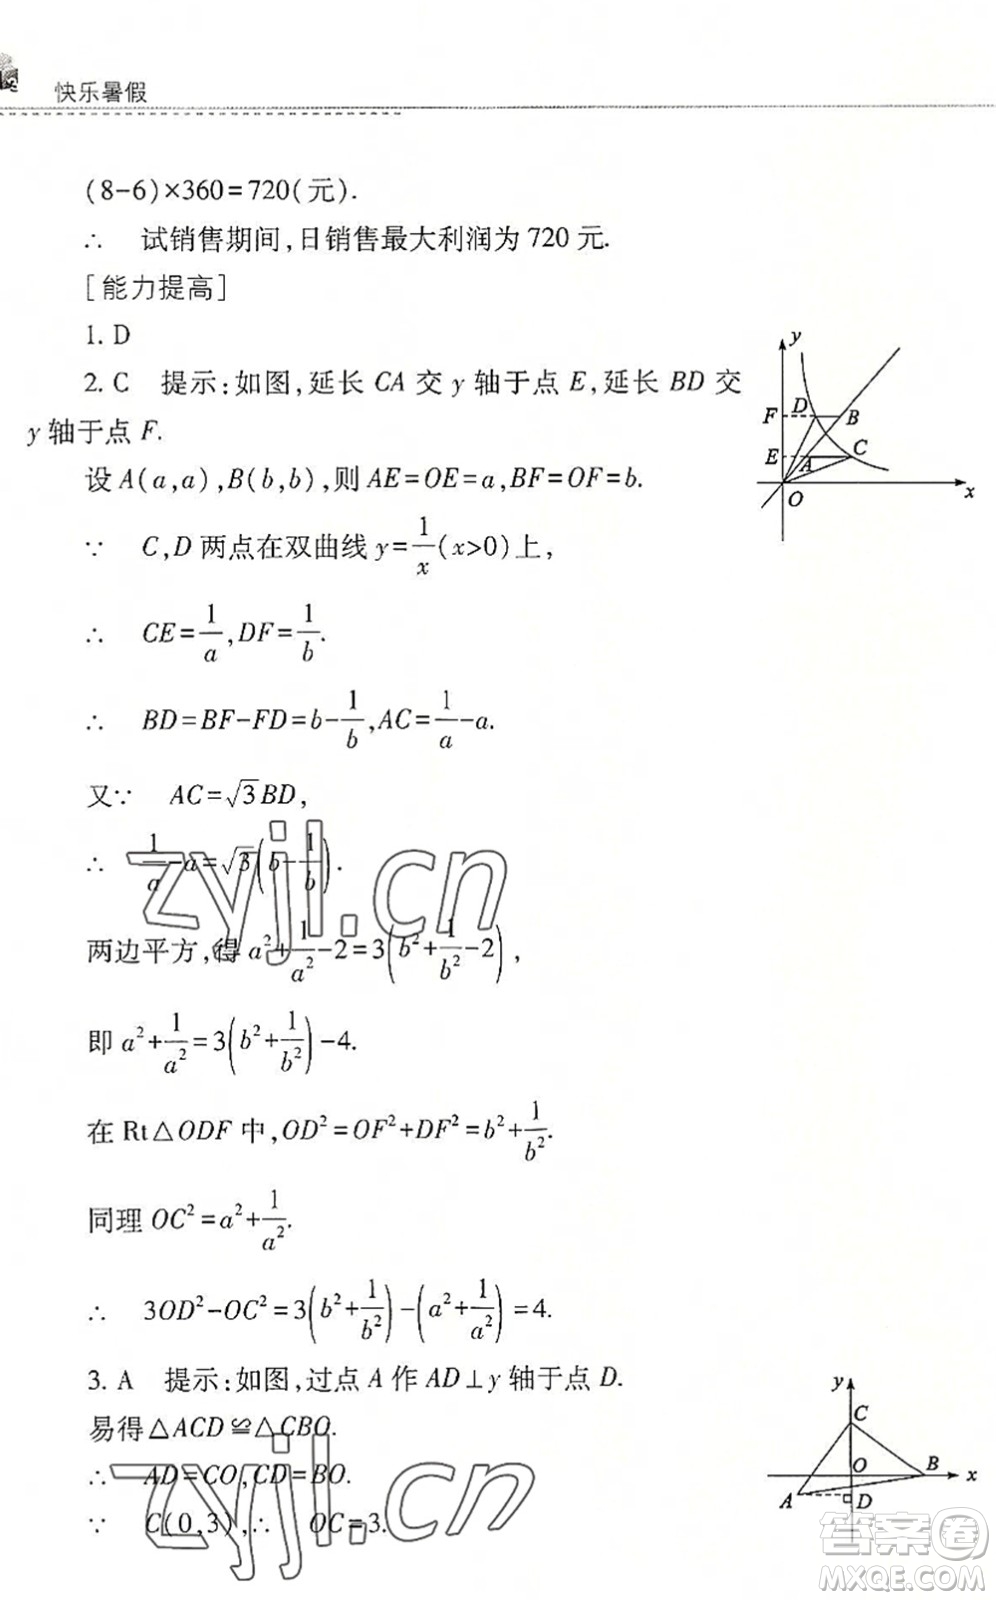 快乐暑假
(8-6)×360=720(元).
∴ 试销售期间,日销售最大利润为 720 元.
[能力提高]
1. D
2. C 提示:如图,延长 CA 交 y 轴于点 E,延长 BD 交
y 轴于点 F.
设 A(a,a),B(b,b),则 AE=OE=a,BF=OF=b.
∵ C,D 两点在双曲线 y=1/x(x>0)上,
∴ CE=1/a,DF=1/b.
∴ BD=BF-FD=b-1/b,AC=1/a-a.
又∵ AC=√3BD,
∴ 1/a-a=√3(b-1/b).
两边平方,得 a²+1/a²-2=3(b²+1/b²-2),
即 a²+1/a²=3(b²+1/b²)-4.
在 Rt△ODF 中,OD²=OF²+DF²=b²+1/b².
同理 OC²=a²+1/a².
∴ 3OD²-OC²=3(b²+1/b²)-(a²+1/a²)=4.
3. A 提示:如图,过点 A 作 AD⊥y 轴于点 D.
易得△ACD≌△CBO.
∴ AD=CO,CD=BO.
∵ C(0,3),∴ OC=3.
y
F D B
E A C
O x
y
C
O B x
A D
zyjl.cn
zyjl.cn
答案圈
MXQE.COM